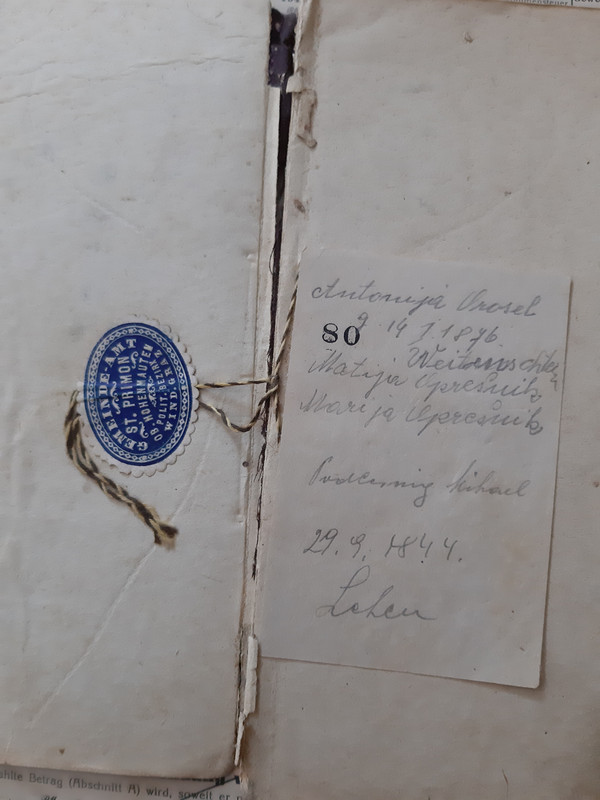 GEMEINDE-AMT
ST. PRIMON
OB HOHENMAUTEN
POLIT. BEZIRK
WIND. GRAZ
Antonija Vrosel
80
9 14 7 1876
Weitenschlag
Matija Oprešnik
Marija Oprešnik
Mihael
29. 9. 1844.
Lehen
ahlte Betrag (Abschnitt A) wird, soweit er